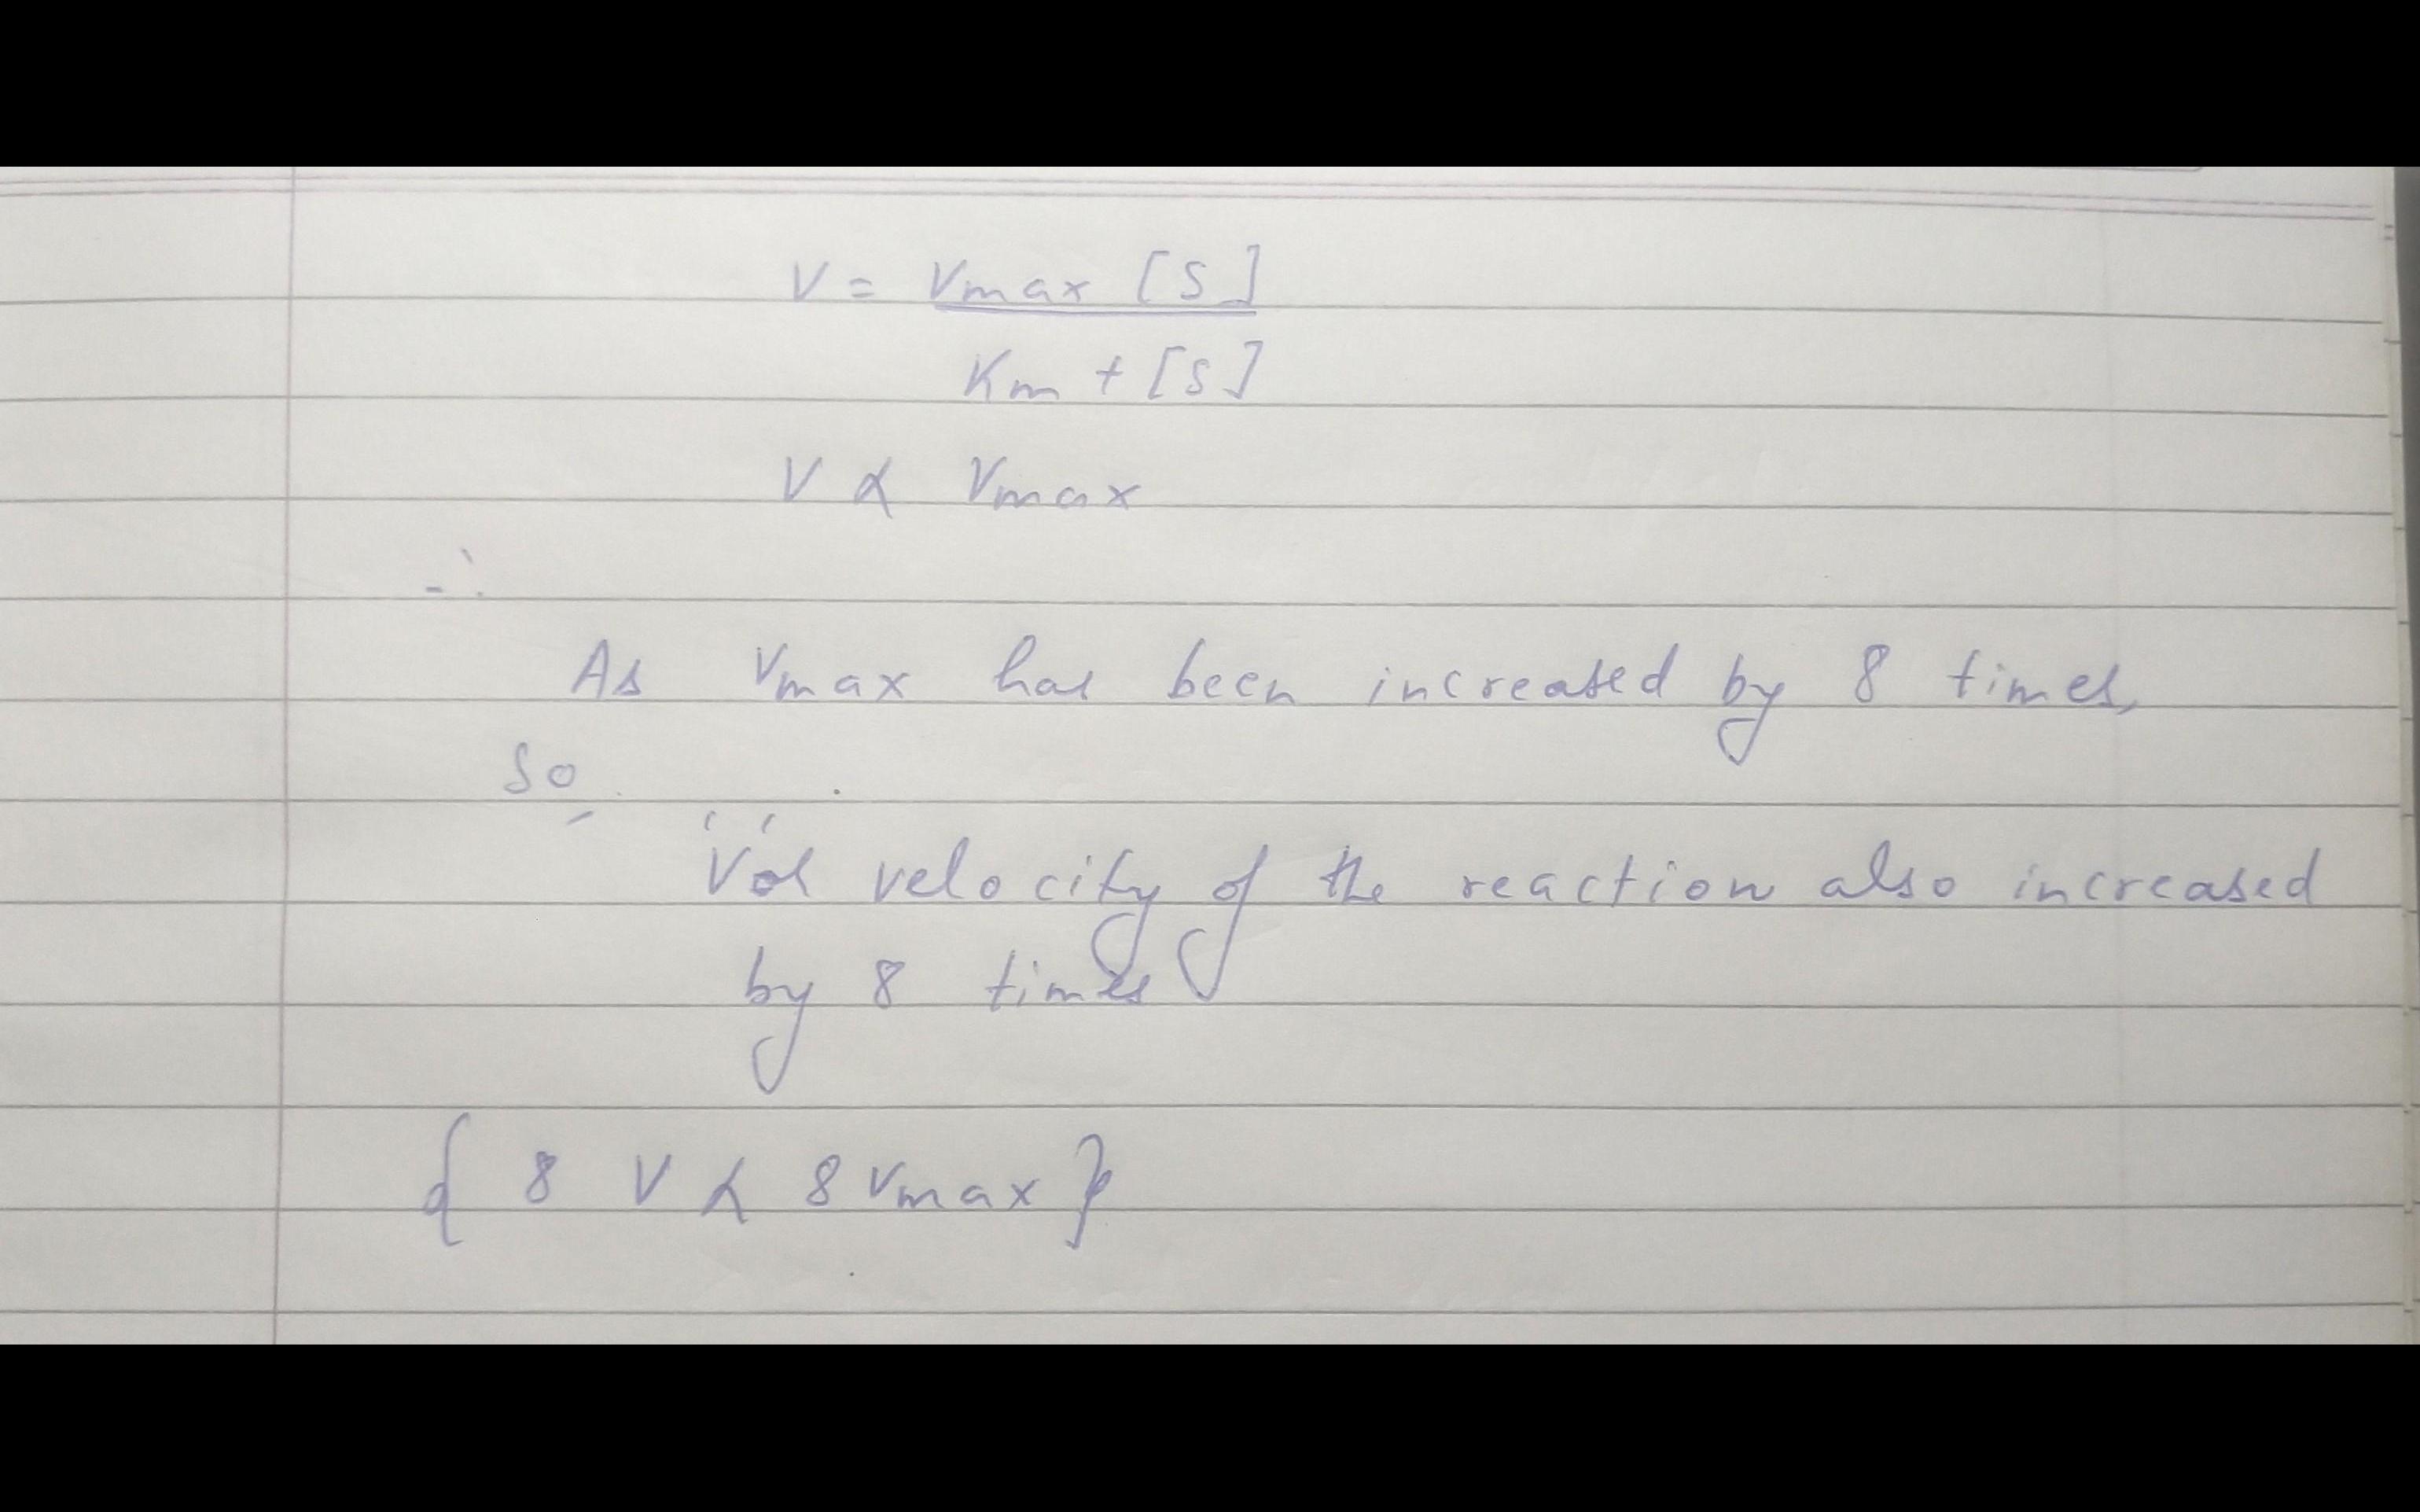 V = Vmax [S]
Km + [S]
V α Vmax
∴
As Vmax has been increased by 8 times,
So,
velocity of the reaction also increased
by 8 times
{ 8 V α 8 Vmax }